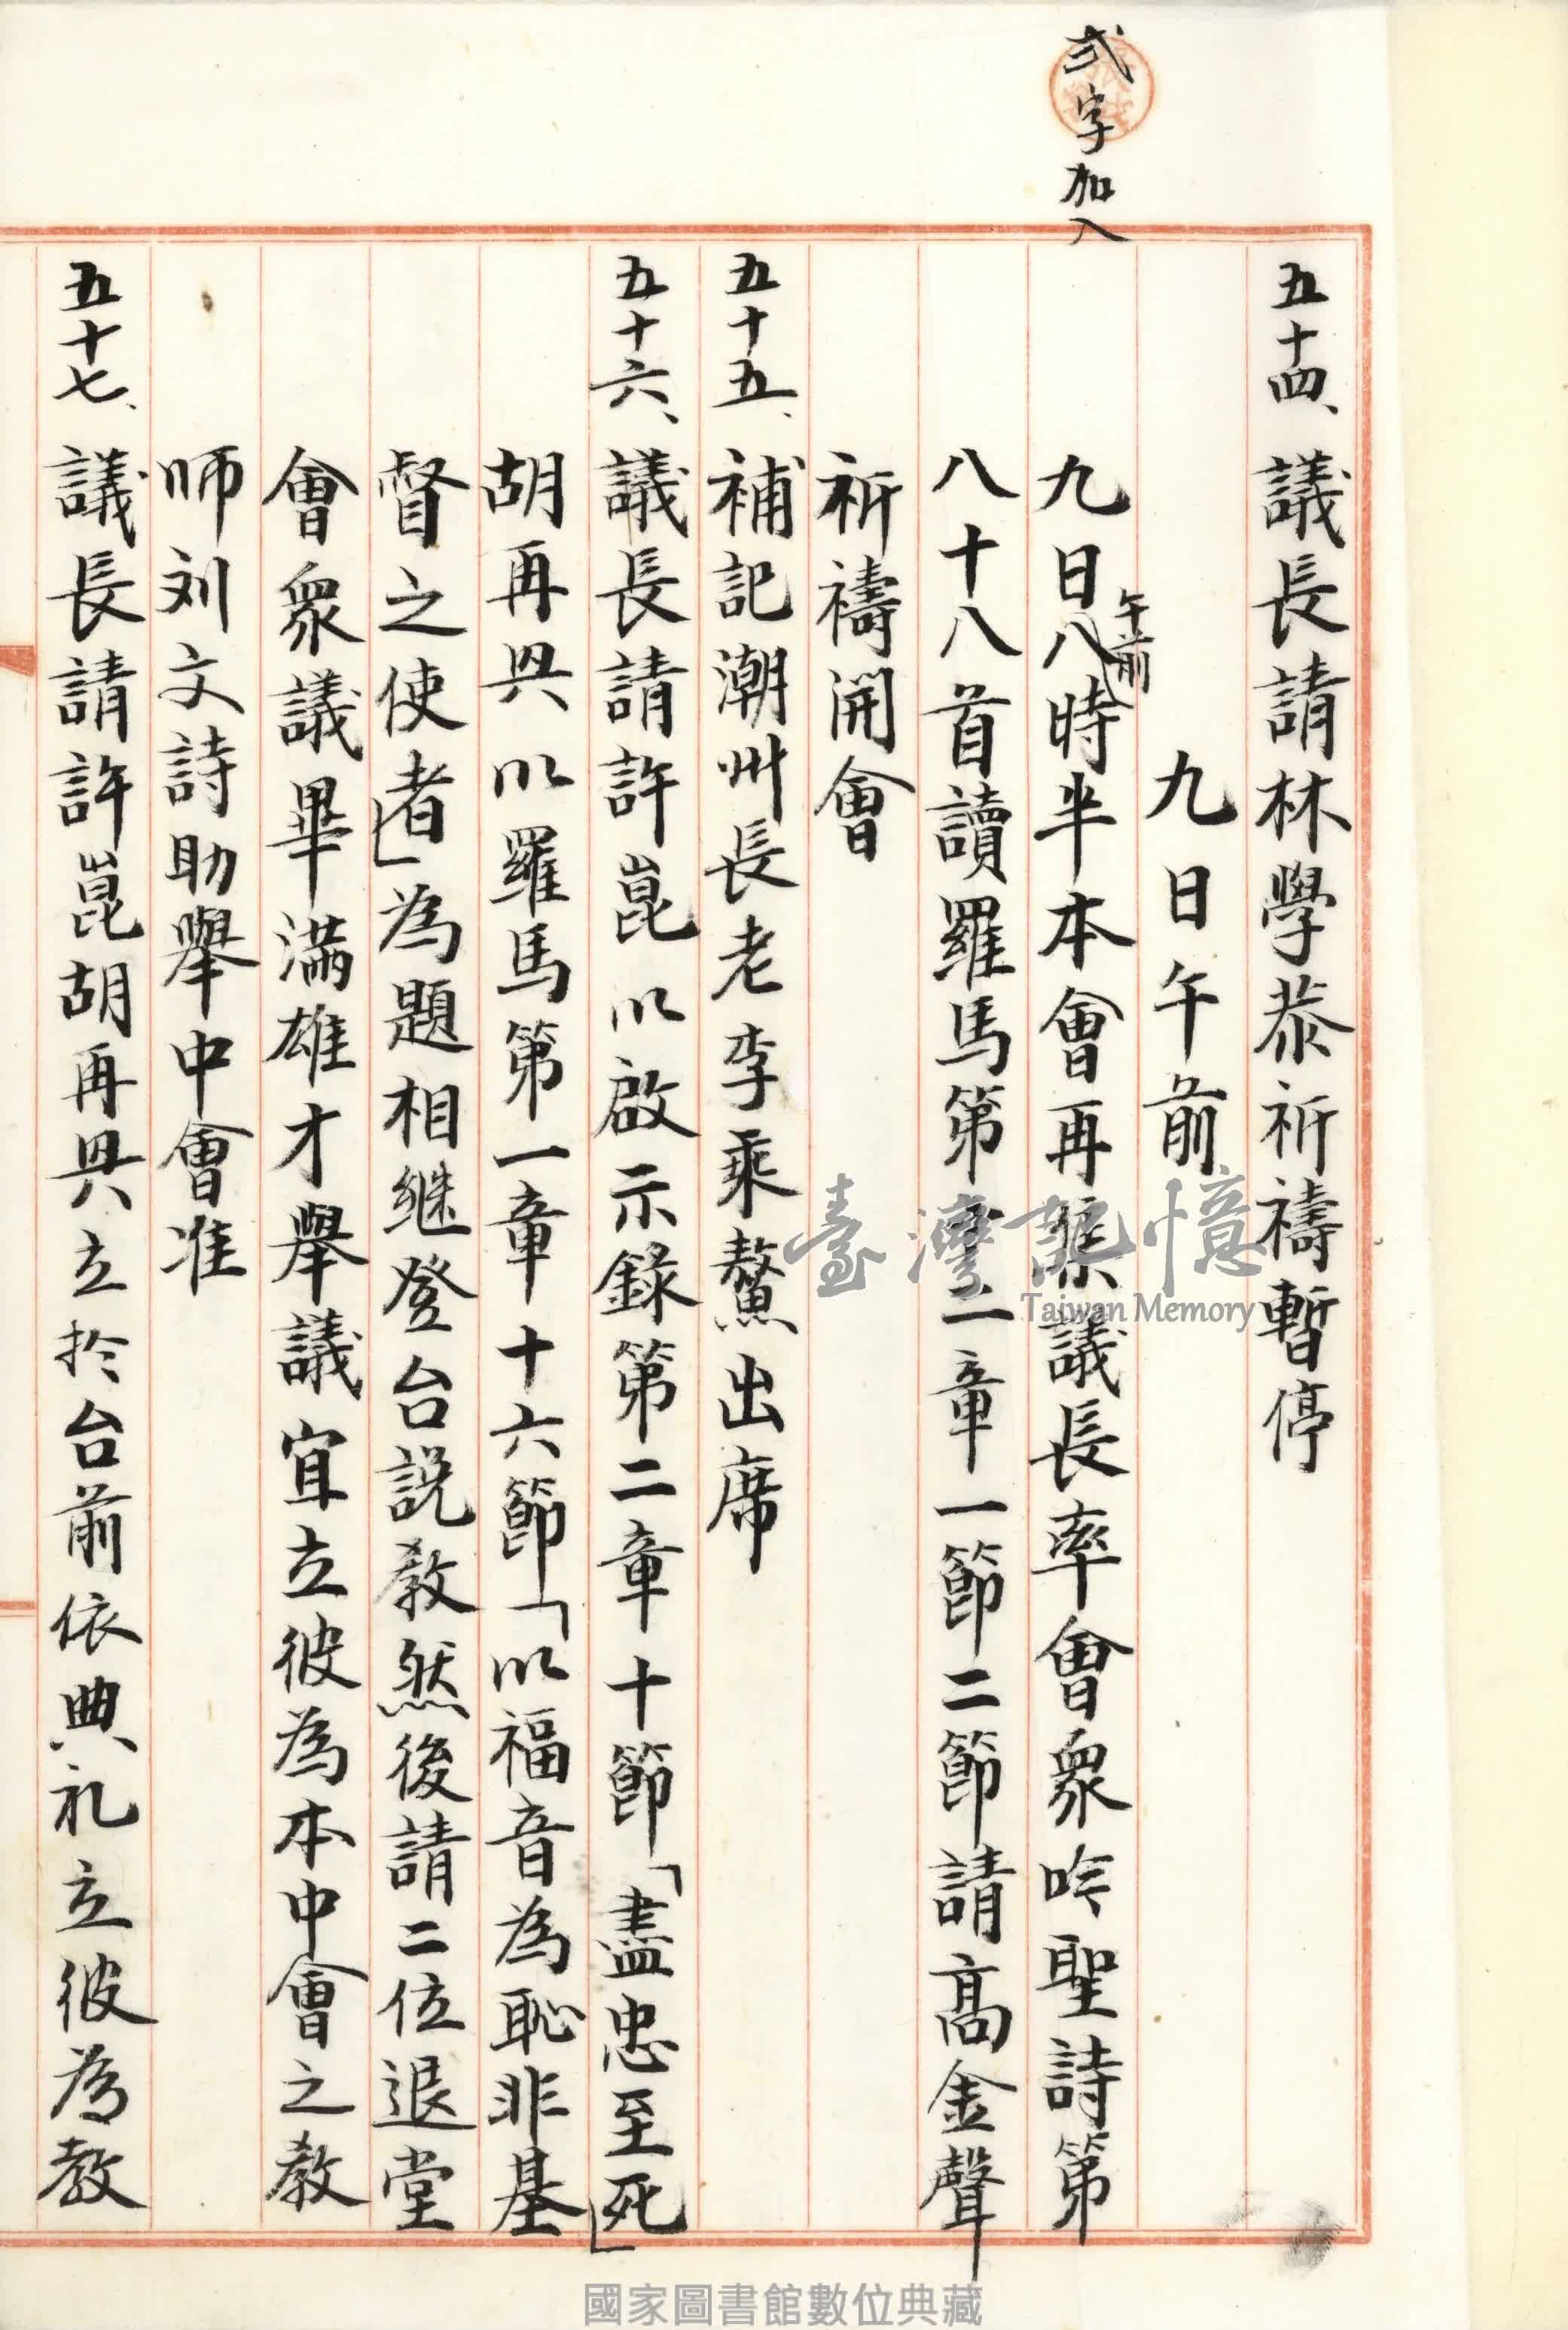 弍字加入
五十四、議長請林學恭祈禱暫停
九日午前
九日午前八時半本會再集議長率會衆吟聖詩第
八十八首讀羅馬第十二章一節二節請高金聲
祈禱開會
五十五、補記潮州長老李乘鰲出席
五十六、議長請許崑以啟示錄第二章十節「盡忠至死」
胡再興以羅馬第一章十六節「以福音為恥非基
督之使者」為題相継登台説教然後請二位退堂
會衆議畢滿雄才舉議宜立彼為本中會之教
师刘文詩助舉中會准
五十七、議長請許崑胡再興立扵台前依典礼立彼為教
臺灣記憶
Taiwan Memory
國家圖書館數位典藏